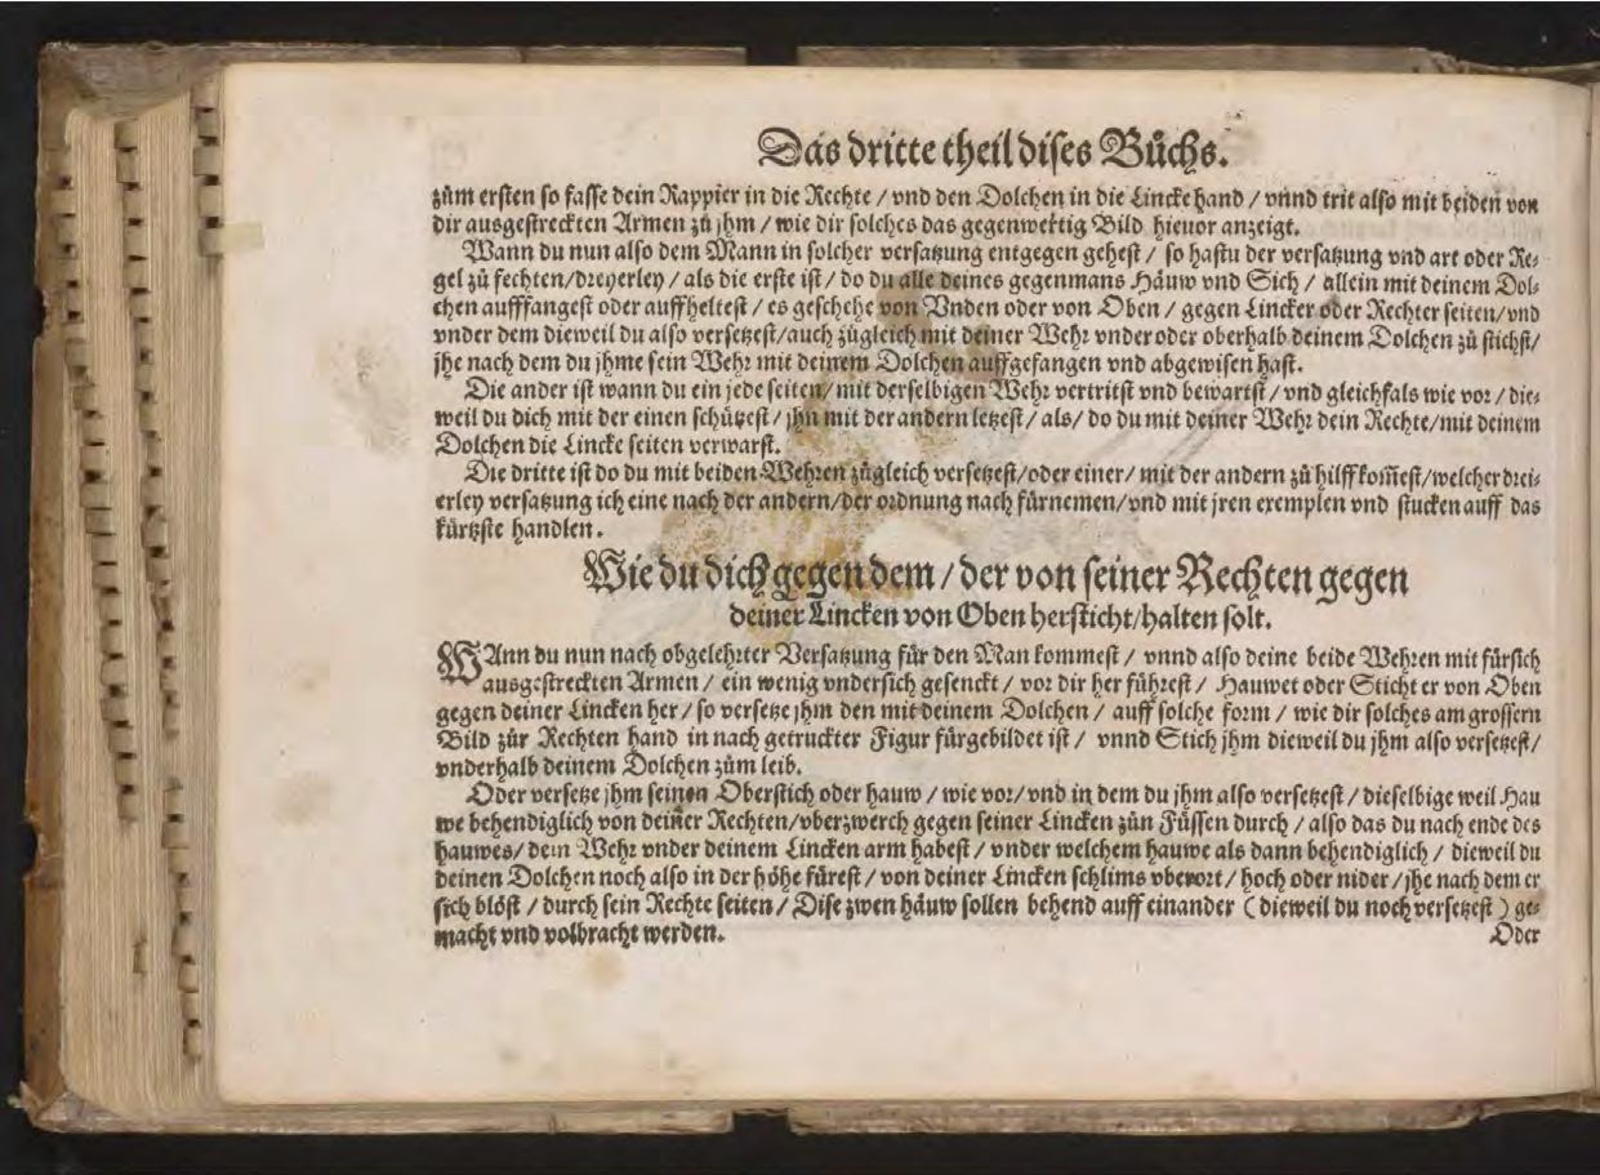 Das dritte theil dises Bůchs.
zům ersten so fasse dein Rappier in die Rechte / vnd den Dolchen in die Lincke hand / vnnd trit also mit beiden von
dir ausgestreckten Armen zů jhm / wie dir solches das gegenwertig Bild hieuor anzeigt.
Wann du nun also dem Mann in solcher versatzung entgegen gehest / so hastu der versatzung vnd art oder Re⸗
gel zů fechten/dreyerley / als die erste ist / do du alle deines gegenmans Häuw vnd Stich / allein mit deinem Dol⸗
chen aufffangest oder auffheltest / es geschehe von Vnden oder von Oben / gegen Lincker oder Rechter seiten/vnd
vnder dem dieweil du also versetzest/auch zůgleich mit deiner Wehr vnder oder oberhalb deinem Dolchen zů stichst/
jhe nach dem du jhme sein Wehr mit deinem Dolchen auffgefangen vnd abgewisen hast.
Die ander ist wann du ein jede seiten/ mit derselbigen Wehr vertritst vnd bewartst / vnd gleichfals wie vor / die⸗
weil du dich mit der einen schützest / jhn mit der andern letzest / als/ do du mit deiner Wehr dein Rechte/mit deinem
Dolchen die Lincke seiten verwarst.
Die dritte ist do du mit beiden Wehren zůgleich versetzest/oder einer/ mit der andern zů hilff kom̃est/welcher drei⸗
erley versatzung ich eine nach der andern/der ordnung nach fürnemen/vnd mit jren exemplen vnd stucken auff das
kürtzste handlen.
Wie du dich gegen dem / der von seiner Rechten gegen
deiner Lincken von Oben hersticht/halten solt.
WAnn du nun nach obgelehrter Versatzung für den Man kommest / vnnd also deine beide Wehren mit fürsich
ausgestreckten Armen / ein wenig vndersich gesenckt / vor dir her führest / Hauwet oder Sticht er von Oben
gegen deiner Lincken her / so versetze jhm den mit deinem Dolchen / auff solche form / wie dir solches am grossern
Bild zůr Rechten hand in nach getruckter Figur fürgebildet ist / vnnd Stich jhm dieweil du jhm also versetzest/
vnderhalb deinem Dolchen zům leib.
Oder versetze jhm seinen Oberstich oder hauw / wie vor/ vnd in dem du jhm also versetzest / dieselbige weil Hau
we behendiglich von deiner Rechten/vberzwerch gegen seiner Lincken zůn Füssen durch / also das du nach ende des
hauwes/ dein Wehr vnder deinem Lincken arm habest / vnder welchem hauwe als dann behendiglich / dieweil du
deinen Dolchen noch also in der höhe fürest / von deiner Lincken schlims vberort / hoch oder nider / jhe nach dem er
sich blöst / durch sein Rechte seiten / Dise zwen häuw sollen behend auff einander ( dieweil du noch versetzest ) ge⸗
macht vnd volbracht werden.
Oder